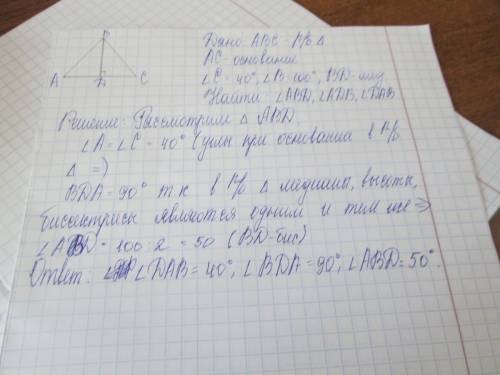 B
A D C
Дано: ABC - р/б Δ
AC - основание
∠C = 40°, ∠B = 100°, BD - мед
Найти: ∠ABD, ∠ADB, ∠DAB
Решение: Рассмотрим Δ ABD.
∠A = ∠C = 40° (углы при основании в р/б
Δ =)
BDA = 90° т к в р/б Δ медианы, высоты,
биссектрисы являются одним и тем же ⇒
∠ABD = 100 2 = 50 (BD - бис)
Ответ: ∠DAB = 40°, ∠BDA = 90°, ∠ABD = 50°.